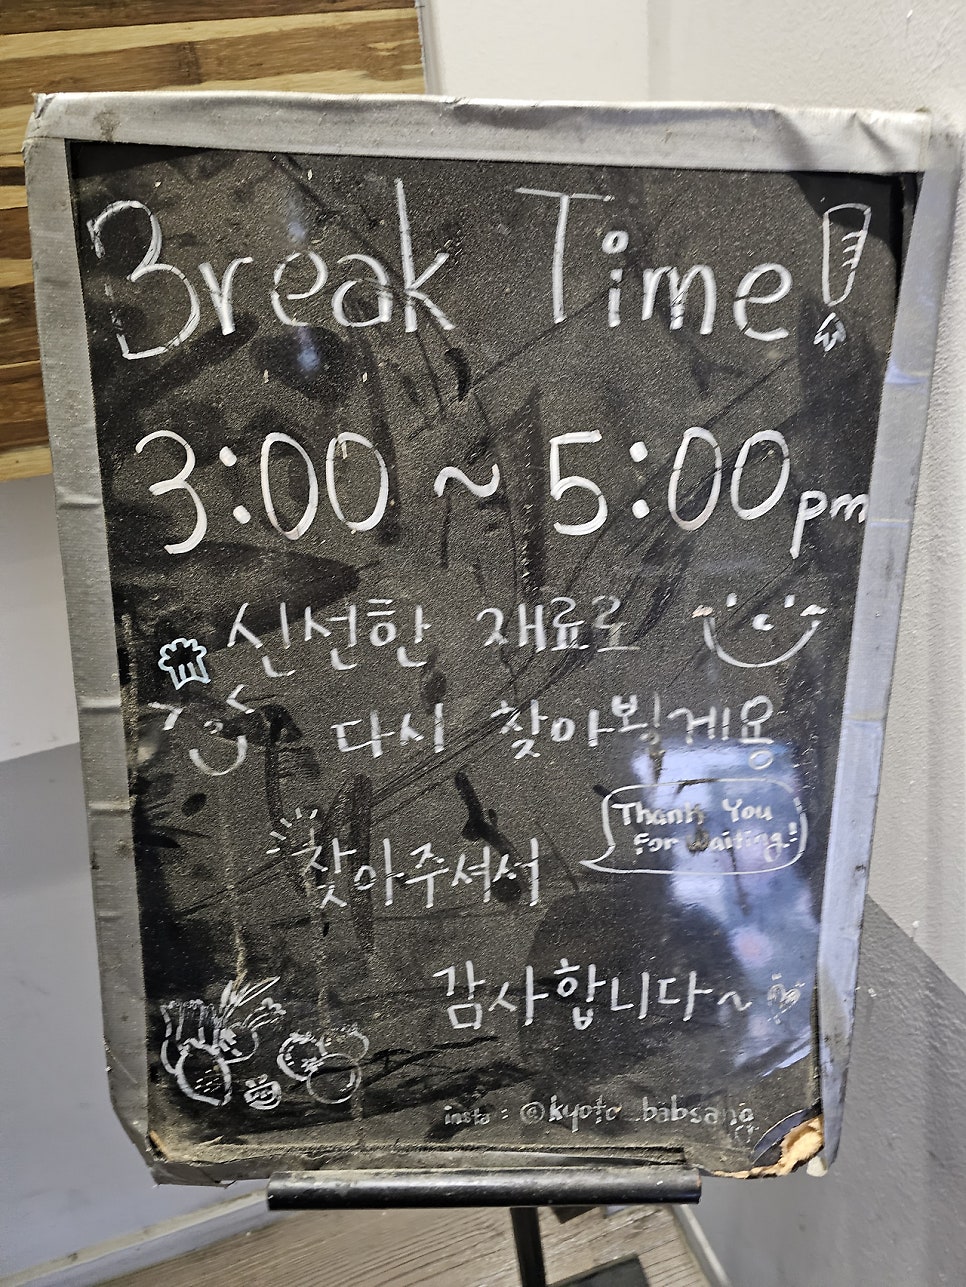 Break Time!
3:00 ~ 5:00 pm
신선한 재료로
다시 찾아뵐게용
Thank You
For Waiting!
찾아주셔서
감사합니다~
insta : @kyoto_babsang